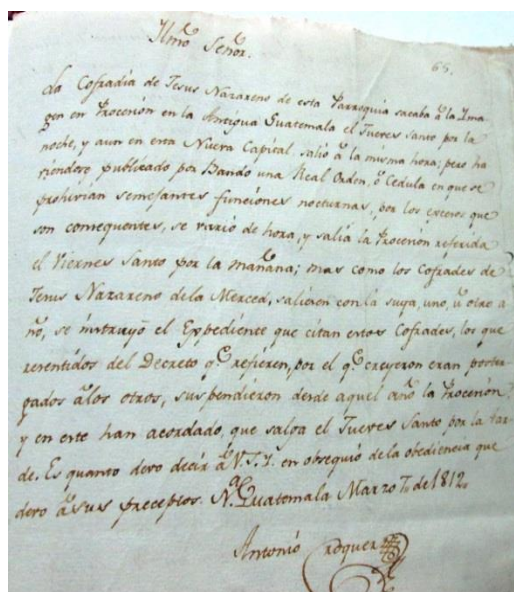 Ilmô Señor.
65.
La Cofradia de Jesus Nazareno de esta Parroquia sacaba â la Ima
gen en Procesion en la Antigua Guatemala el Jueves Santo por la
noche, y aun en esta Nueva Capital salió â la misma hora; pero ha
viendose publicado por Bando una Real Orden, ô Cedula en que se
prohivian semejantes funciones nocturnas, por los excesos que
son consequentes, se varió de hora, y salia la Procesion referida
el Viernes Santo por la mañana; mas como los Cofrades de
Jesus Nazareno dela Merced, saliesen con la suya, uno, û otro a
ño, se instruyó el Expediente que citan estos Cofrades, los que
resentidos del Decreto q.e refieren, por el q.e creyeron eran poster
gados âlos otros, suspendieron desde aquel año la Procesion,
y en este han acordado, que salga el Jueves Santo por la tar
de. Es quanto devo decir â V.S.I. en obsequio de la obediencia que
devo âsus preceptos. N.a Guatemala Marzo 7,, de 1812,,
Antonio Croquer